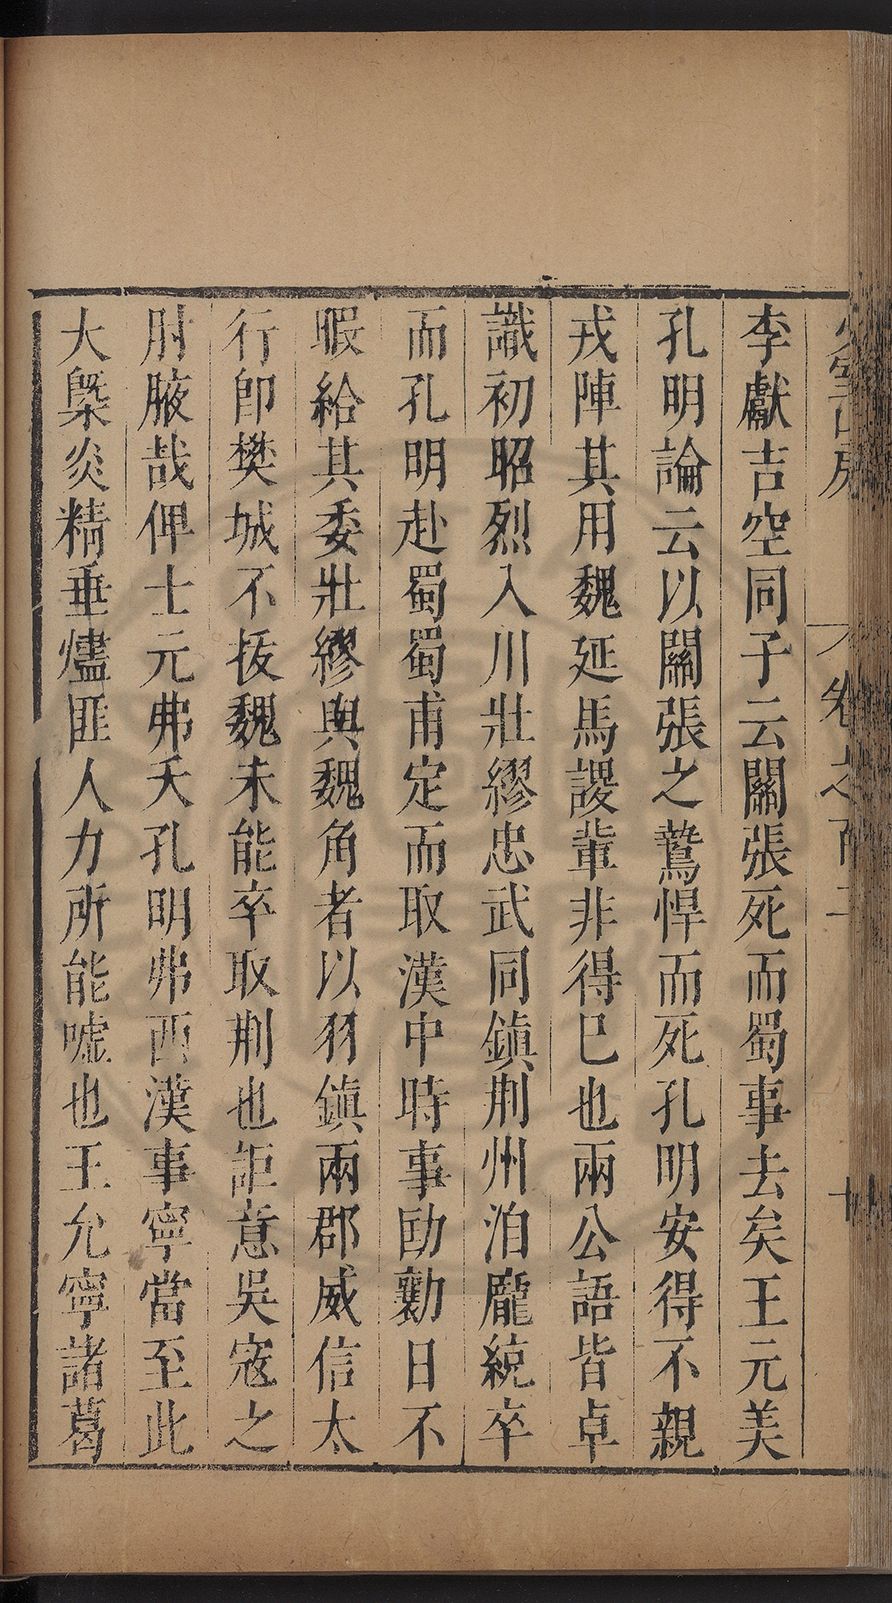 李獻吉空同子云關張死而蜀事去矣王元美
孔明論云以關張之鷙悍而死孔明安得不親
戎陣其用魏延馬謖輩非得巳也兩公語皆卓
識初昭烈入川壯繆忠武同鎮荆州洎龐統卒
而孔明赴蜀蜀甫定而取漢中時事劻勷日不
暇給其委壯繆與魏角者以羽鎮兩郡威信太
行卽樊城不拔魏未能卒取荆也詎意吳寇之
肘腋哉俾士元弗夭孔明弗西漢事寧當至此
大槩炎精垂燼匪人力所能噓也王允寧諸葛